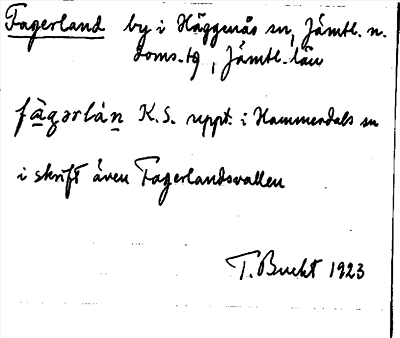 Fagerland by i Häggenås sn, Jämtl. n.
doms.tg, Jämtl. län
fàgərlàn K.S. uppt. i Hammerdals sn
i skrift även Fagerlandsvallen
T. Bucht 1923